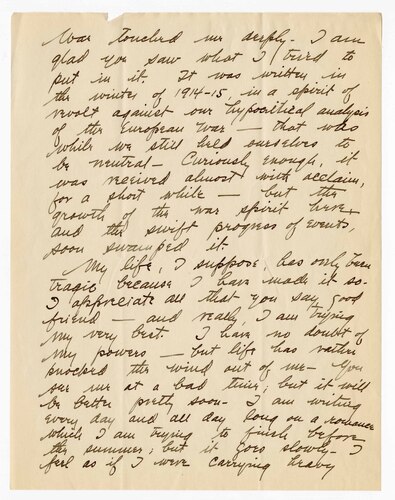 War touched me deeply - I am
glad you saw what I tried to
put in it. It was written in
the winter of 1914-15, in a spirit of
revolt against our hypocritical analysis
of the European War — that was
while we still held ourselves to
be neutral - Curiously enough, it
was received almost with acclaim,
for a short while — but the
growth of the war spirit here,
and the swift progress of events,
soon swamped it.
My life, I suppose, has only been
tragic because I have made it so.
I appreciate all that you say, good
friend — and really, I am trying
my very best. I have no doubt of
my powers — but life has rather
knocked the wind out of me - You
see me at a bad time; but it will
be better pretty soon - I am writing
every day and all day long on a romance
which I am trying to finish before
the summer; but it goes slowly - I
feel as if I were carrying heavy